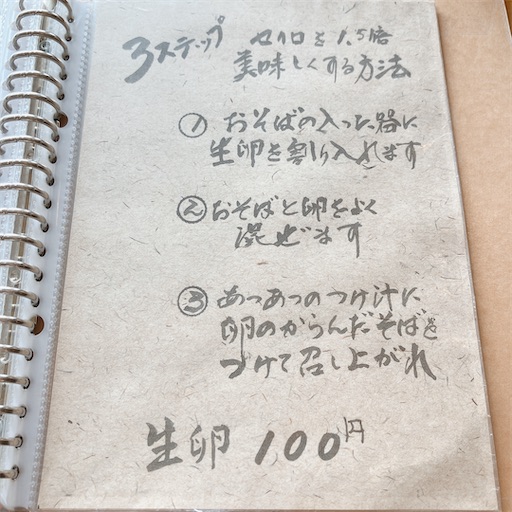 3ステップ セイロを1.5倍
美味しくする方法
① おそばの入った器に
生卵を割り入れます
② おそばと卵をよく
混ぜます
③ あつあつのつけ汁に
卵のからんだそばを
つけて召し上がれ
生卵 100円